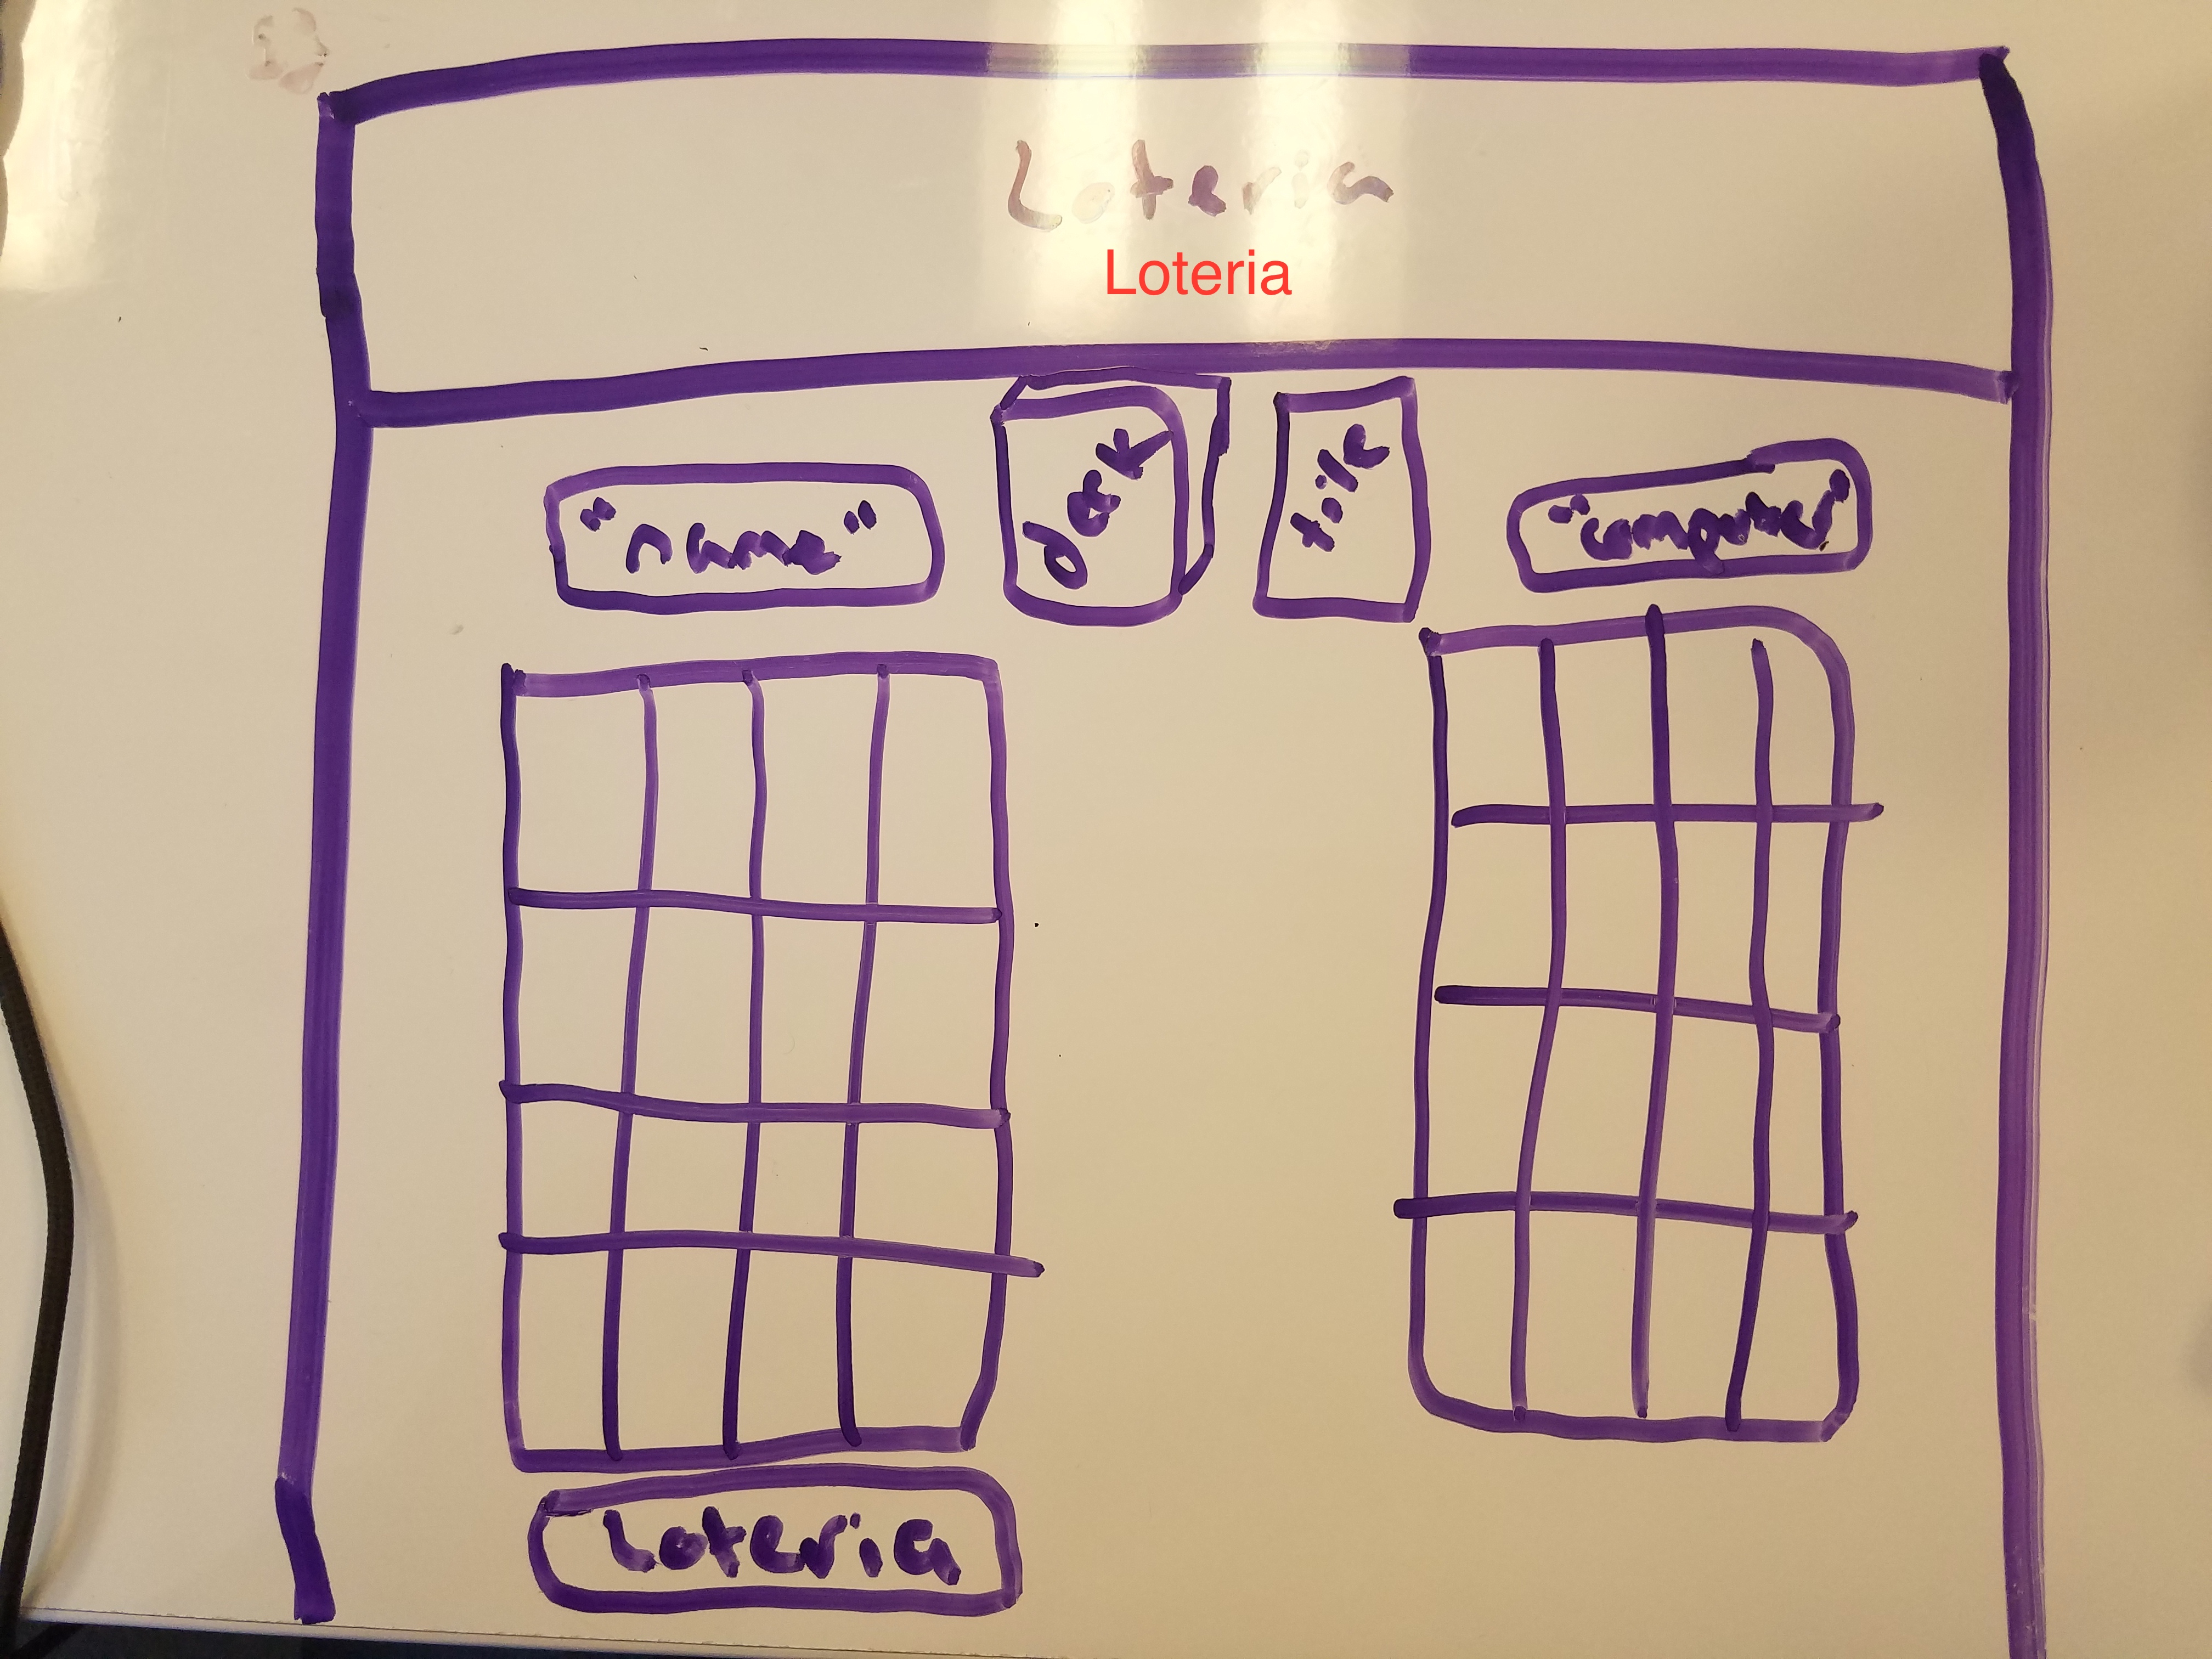 Loteria
Loteria
"name"
deck
title
"computer"
Loteria